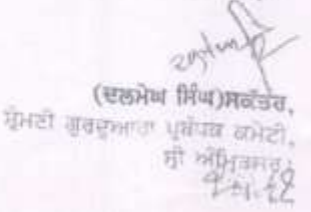 (ਦਲਮੇਘ ਸਿੰਘ)ਸਕੱਤਰ,
ਸ਼੍ਰੋਮਣੀ ਗੁਰਦੁਆਰਾ ਪ੍ਰਬੰਧਕ ਕਮੇਟੀ,
ਸ੍ਰੀ ਅੰਮ੍ਰਿਤਸਰ,